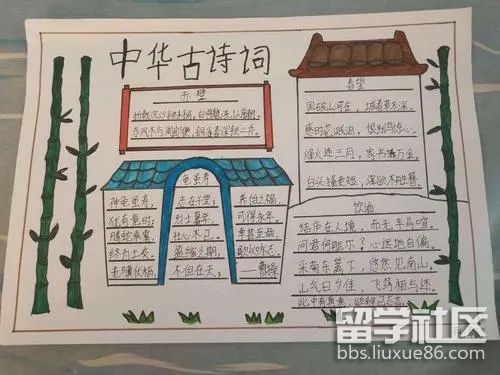 中华古诗词
赤壁
折戟沉沙铁未销,自将磨洗认前朝。
东风不与周郎便,铜雀春深锁二乔。
春望
国破山河在,城春草木深。
感时花溅泪,恨别鸟惊心。
烽火连三月,家书抵万金。
白头搔更短,浑欲不胜簪。
龟虽寿
神龟虽寿,
犹有竟时;
腾蛇乘雾,
终为土灰。
老骥伏枥,
志在千里;
烈士暮年,
壮心不已。
盈缩之期,
不但在天;
养怡之福,
可得永年。
幸甚至哉,
歌以咏志。
——曹操
饮酒
结庐在人境,而无车马喧。
问君何能尔?心远地自偏。
采菊东篱下,悠然见南山。
山气日夕佳,飞鸟相与还。
此中有真意,欲辨已忘言。
留学社区
bbs.liuxue86.com